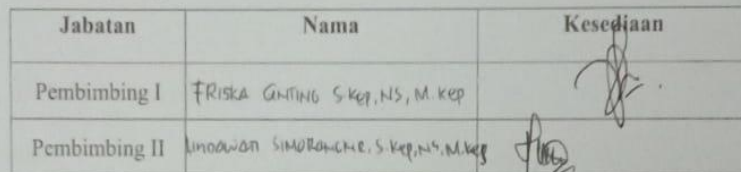 Jabatan Nama Kesediaan
Pembimbing I FRISKA GINTING S.Kep, NS, M.Kep
Pembimbing II S.Kep, NS, M.Kep